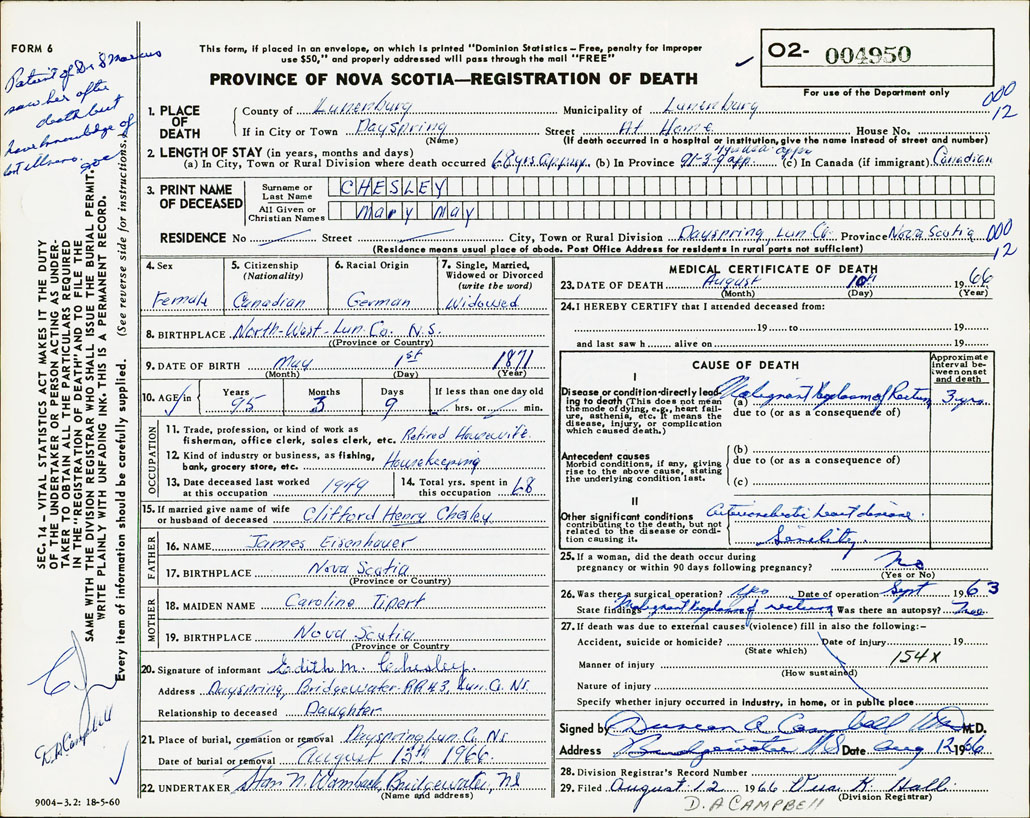 FORM 6
This form, if placed in an envelope, on which is printed "Dominion Statistics – Free, penalty for improper
use $50," and properly addressed will pass through the mail "FREE"
PROVINCE OF NOVA SCOTIA—REGISTRATION OF DEATH
O2- 004950
For use of the Department only
Patient of Dr S Marcus
saw her after
death but
have knowledge of
000
12
1. PLACE OF DEATH
County of Lunenburg Municipality of Lunenburg
If in City or Town Dayspring Street At Home House No.
(Name) (If death occurred in a hospital or institution, give the name instead of street and number)
2. LENGTH OF STAY (in years, months and days)
(a) In City, Town or Rural Division where death occurred 68 yrs approx (b) In Province 95-3-9 app. (c) In Canada (if immigrant) Canadian
3. PRINT NAME OF DECEASED
Surname or Last Name CHESLEY
All Given or Christian Names Mary May
RESIDENCE No Street City, Town or Rural Division Dayspring, Lun. Co. Province Nova Scotia
000
12
(Residence means usual place of abode. Post Office Address for residents in rural parts not sufficient)
4. Sex Female
5. Citizenship (Nationality) Canadian
6. Racial Origin German
7. Single, Married, Widowed or Divorced (write the word) Widowed
8. BIRTHPLACE North-West-Lun. Co. N.S.
(Province or Country)
9. DATE OF BIRTH May 1st 1871
(Month) (Day) (Year)
10. AGE in Years 95 Months 3 Days 9 If less than one day old hrs. or min.
OCCUPATION
11. Trade, profession, or kind of work as fisherman, office clerk, sales clerk, etc. Retired Housewife
12. Kind of industry or business, as fishing, bank, grocery store, etc. Housekeeping
13. Date deceased last worked at this occupation 1949
14. Total yrs. spent in this occupation 68
15. If married give name of wife or husband of deceased Clifford Henry Chesley
FATHER
16. NAME James Eisenhauer
17. BIRTHPLACE Nova Scotia
(Province or Country)
MOTHER
18. MAIDEN NAME Caroline Tipert
19. BIRTHPLACE Nova Scotia
(Province or Country)
20. Signature of informant Edith M. Chesley
Address Dayspring, Bridgewater R.R.#3, Lun. Co. N.S.
Relationship to deceased Daughter
21. Place of burial, cremation or removal Dayspring Lun. Co. N.S
Date of burial or removal August 13th 1966
22. UNDERTAKER Bridgewater, NS
(Name and address)
MEDICAL CERTIFICATE OF DEATH
23. DATE OF DEATH August 10th 1966
(Month) (Day) (Year)
24. I HEREBY CERTIFY that I attended deceased from:
19 to 19
and last saw h alive on 19
CAUSE OF DEATH
Approximate interval between onset and death
I
Disease or condition directly leading to death (This does not mean the mode of dying, e.g., heart failure, asthenia, etc. It means the disease, injury, or complication which caused death.)
(a) Malignant Neoplasm of Rectum 3 yrs.
due to (or as a consequence of)
Antecedent causes
Morbid conditions, if any, giving rise to the above cause, stating the underlying condition last.
(b)
due to (or as a consequence of)
(c)
II
Other significant conditions
contributing to the death, but not related to the disease or condition causing it.
Arteriosclerotic heart disease
Senility.
25. If a woman, did the death occur during
pregnancy or within 90 days following pregnancy? no
(Yes or No)
26. Was there a surgical operation? yes Date of operation Sept 1963
State findings Malignant Neoplasm of rectum Was there an autopsy?
27. If death was due to external causes (violence) fill in also the following:–
Accident, suicide or homicide? Date of injury 19
(State which)
154X
Manner of injury
(How sustained)
Nature of injury
Specify whether injury occurred in Industry, in home, or in public place
Signed by Duncan A Campbell M.D.
Address Bridgewater NS Date Aug 12 1966
28. Division Registrar's Record Number
29. Filed August 12 1966 K. Hall
(Division Registrar)
D. A CAMPBELL
SEC. 14 – VITAL STATISTICS ACT MAKES IT THE DUTY
OF THE UNDERTAKER OR PERSON ACTING AS UNDER-
TAKER TO OBTAIN ALL THE PARTICULARS REQUIRED
IN THE "REGISTRATION OF DEATH" AND TO FILE THE
SAME WITH THE DIVISION REGISTRAR WHO SHALL ISSUE THE BURIAL PERMIT.
WRITE PLAINLY WITH UNFADING INK. THIS IS A PERMANENT RECORD.
Every item of information should be carefully supplied. (See reverse side for instructions.)
D. A Campbell
9004-3.2: 18-5-60